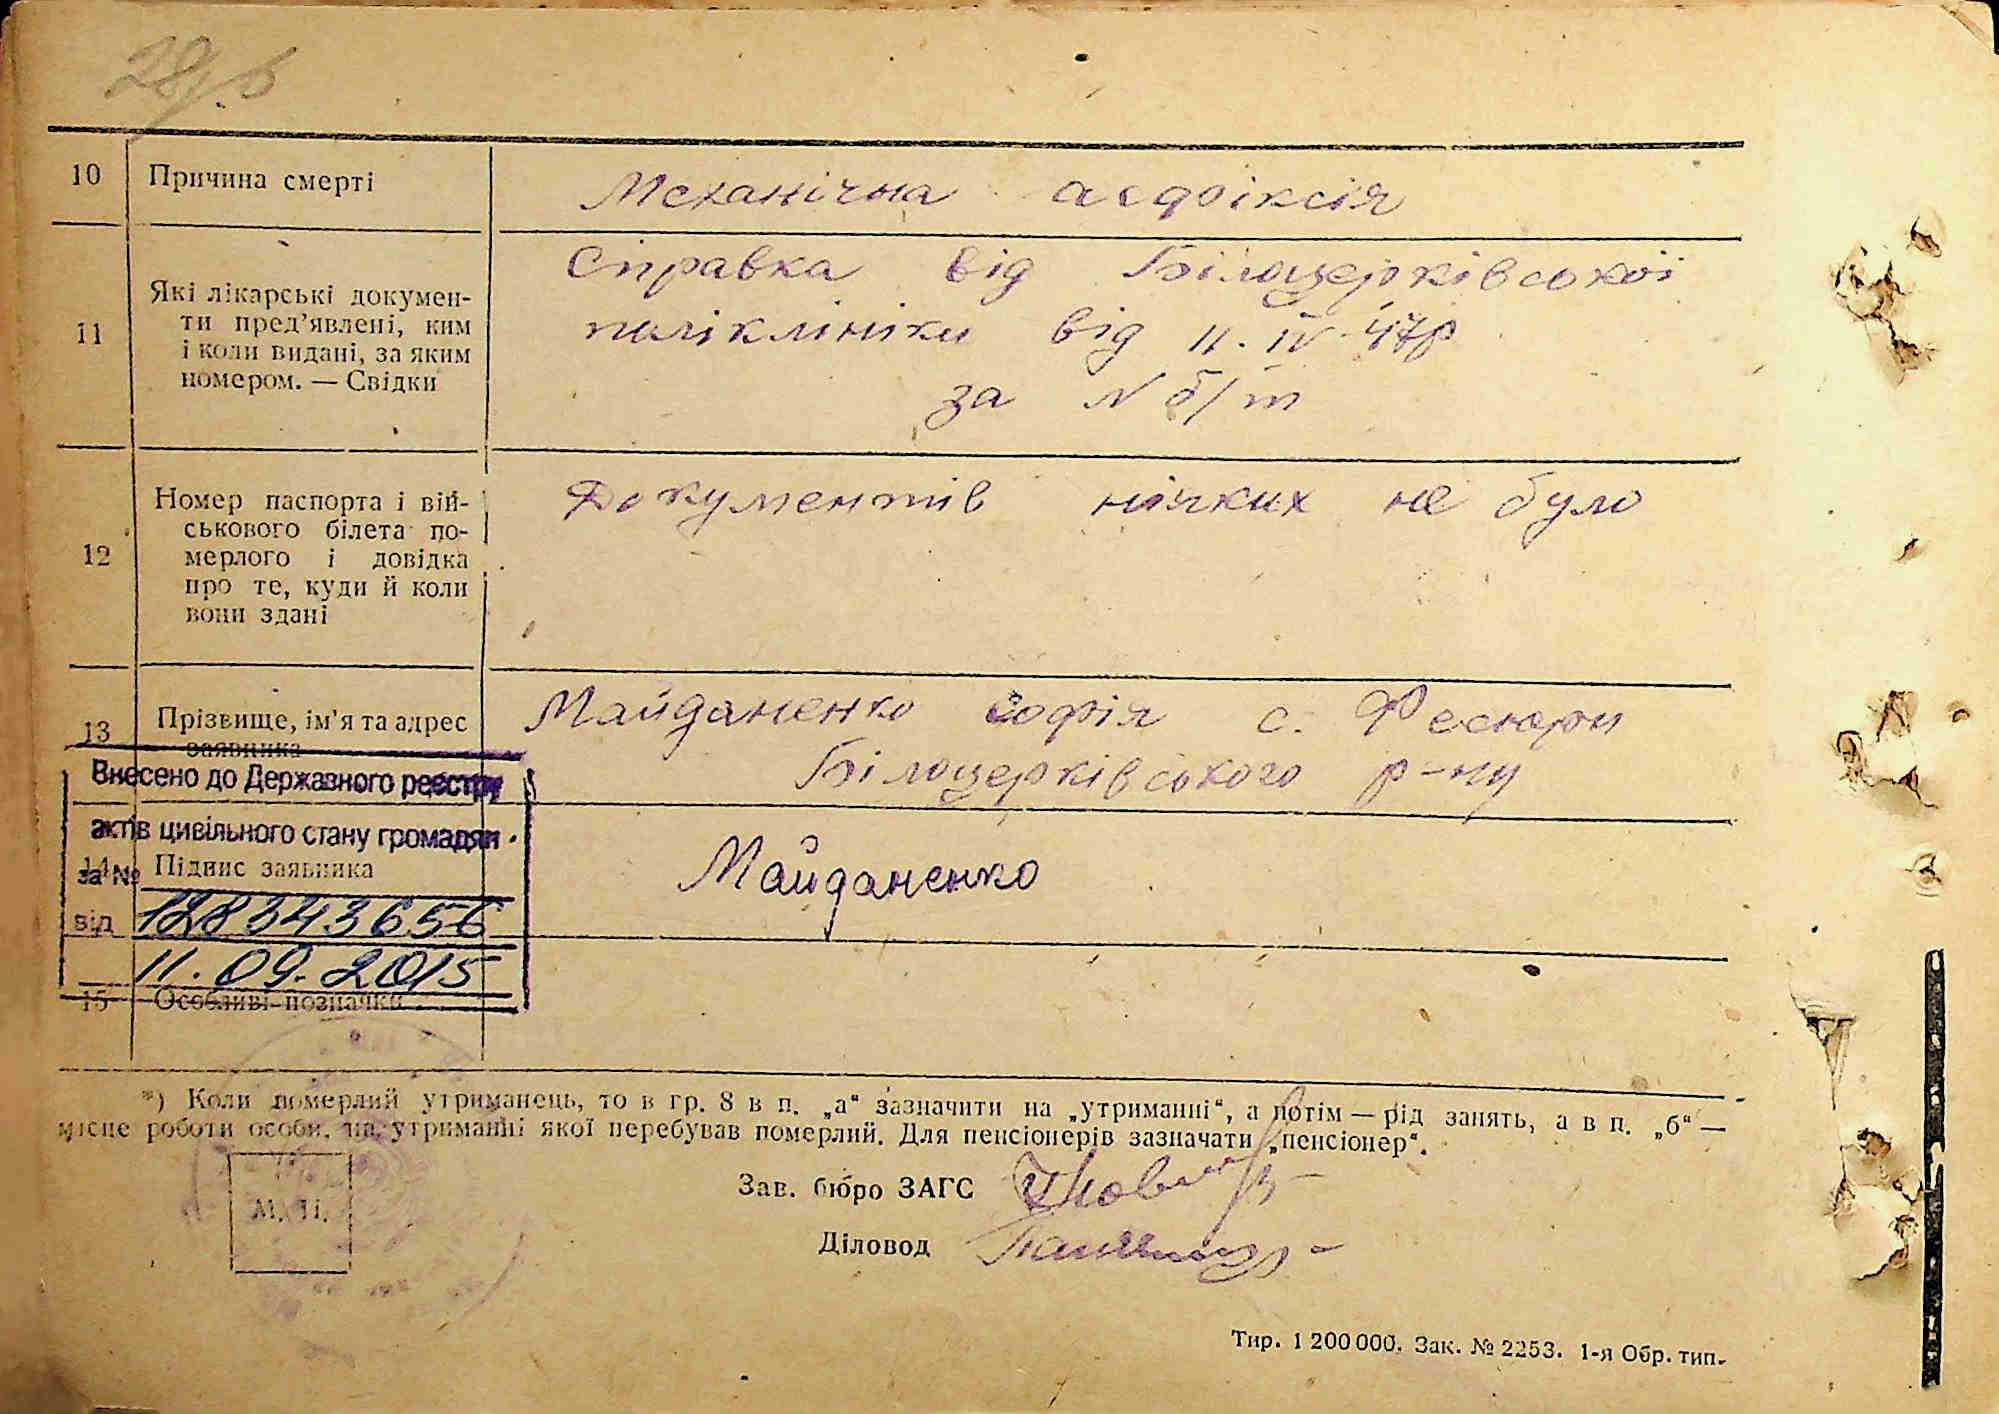 10 Причина смерті Механічна асфіксія
11 Які лікарські докумен-
ти пред'явлені, ким
і коли видані, за яким
номером. — Свідки
Справка від Білоцерківської
поліклініки від 11. IV 47р
за N б/т
12 Номер паспорта і вій-
ськового білета по-
мерлого і довідка
про те, куди й коли
вони здані
Документів ніяких не було
13 Прізвище, ім'я та адрес
заявника
Майданенко Софія с. Фесюри
Білоцерківського р-ну
Внесено до Державного реєстру
актів цивільного стану громадян
за №
14 Підпис заявника Майданенко
128343656
від 11.09.2015
15 Особливі позначки
*) Коли померлий утриманець, то в гр. 8 в п. „а“ зазначити на „утриманні“, а потім — рід занять, а в п. „б“ —
місце роботи особи, на утриманні якої перебував померлий. Для пенсіонерів зазначати „пенсіонер“.
М. П.
Зав. бюро ЗАГС
Діловод
Тир. 1 200 000. Зак. № 2253. 1-я Обр. тип.